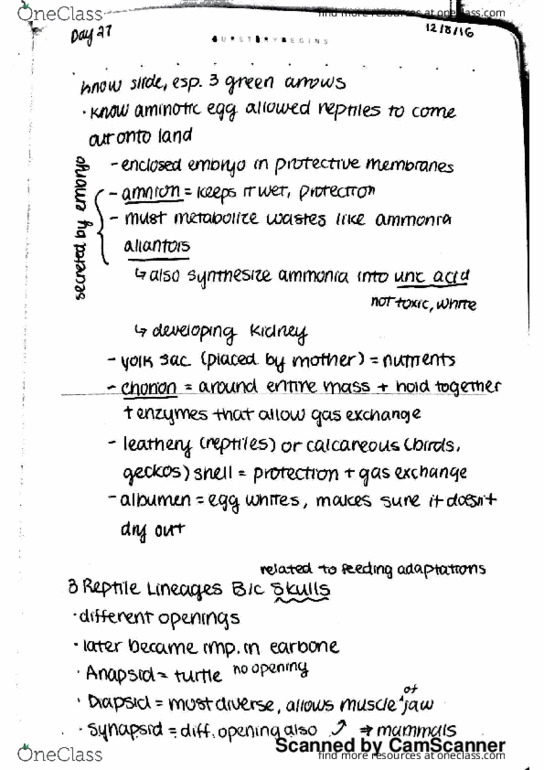 OneClass
find more resources at oneclass.com
Day 27
12/8/16
know slide, esp. 3 green arrows
· know aminotic egg allowed reptiles to come
out onto land
- enclosed embryo in protective membranes
- amnion = keeps it wet, protection
- must metabolize wastes like ammonia
allantois
secreted by embryo
↳ also synthesize ammonia into uric acid
not toxic, white
↳ developing kidney
- yolk sac (placed by mother) = nutrients
- chorion = around entire mass + hold together
+ enzymes that allow gas exchange
- leathery (reptiles) or calcareous (birds,
geckos) shell = protection + gas exchange
- albumen = egg whites, makes sure it doesn't
dry out
related to feeding adaptations
3 Reptile Lineages B/c Skulls
· different openings
· later became imp. in earbone
· Anapsid = turtle no opening
· Diapsid = most diverse, allows muscle of jaw
· Synapsid = diff. opening also ⤴ ⇒ mammals
Scanned by CamScanner
OneClass
find more resources at oneclass.com